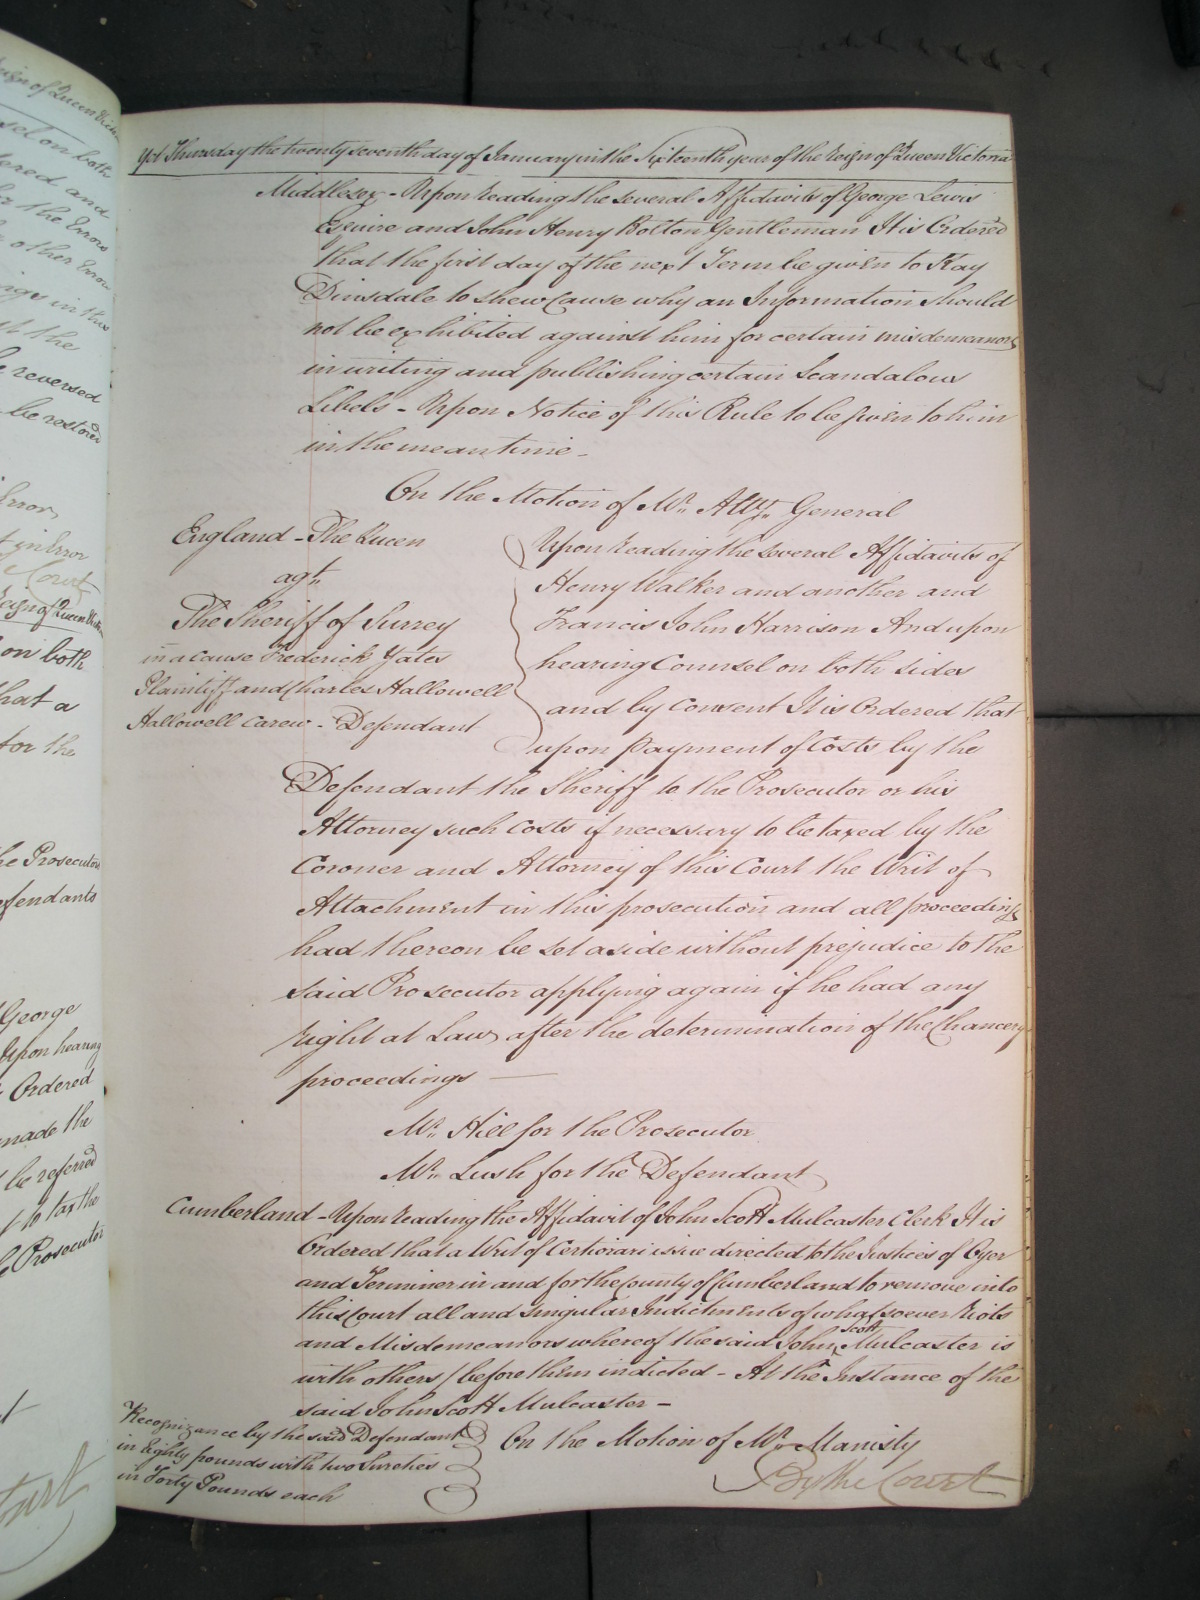 Yet Thursday the twenty seventh day of January in the Sixteenth year of the Reign of Queen Victoria
Middlesex - Upon reading the several Affidavits of George Lewis
Esquire and John Henry Bolton Gentleman It is Ordered
that the first day of the next Term be given to Kay
Dinsdale to shew Cause why an Information should
not be exhibited against him for certain misdemeanors
in writing and publishing certain Scandalous
Libels - Upon Notice of this Rule to be given to him
in the meantime -
On the Motion of Mr. Atty. General
England - The Queen
agt.
The Sheriff of Surrey
in a cause Frederick Yates
Plaintiff and Charles Hallowell
Hallowell Carew - Defendant
Upon reading the several Affidavits of
Henry Walker and another and
Francis John Harrison And upon
hearing Counsel on both sides
and by Consent It is Ordered that
upon payment of Costs by the
Defendant the Sheriff to the Prosecutor or his
Attorney such costs if necessary to be taxed by the
Coroner and Attorney of this Court the Writ of
Attachment in this prosecution and all proceedings
had thereon be set aside without prejudice to the
said Prosecutor applying again if he had any
right at Law after the determination of the Chancery
proceedings
Mr. Hill for the Prosecutor
Mr. Lush for the Defendant
Cumberland - Upon reading the Affidavit of John Scott Mulcaster Clerk It is
Ordered that a Writ of Certiorari issue directed to the Justices of Oyer
and Terminer in and for the County of Cumberland to remove into
this Court all and singular Indictments of whatsoever Riots
and Misdemeanors whereof the said John Scott Mulcaster is
with others / before them indicted - At the Instance of the
said John Scott Mulcaster -
Recognizance by the said Defendant
in Eighty pounds with two Sureties
in Forty Pounds each
On the Motion of Mr. Manisty
By the Court